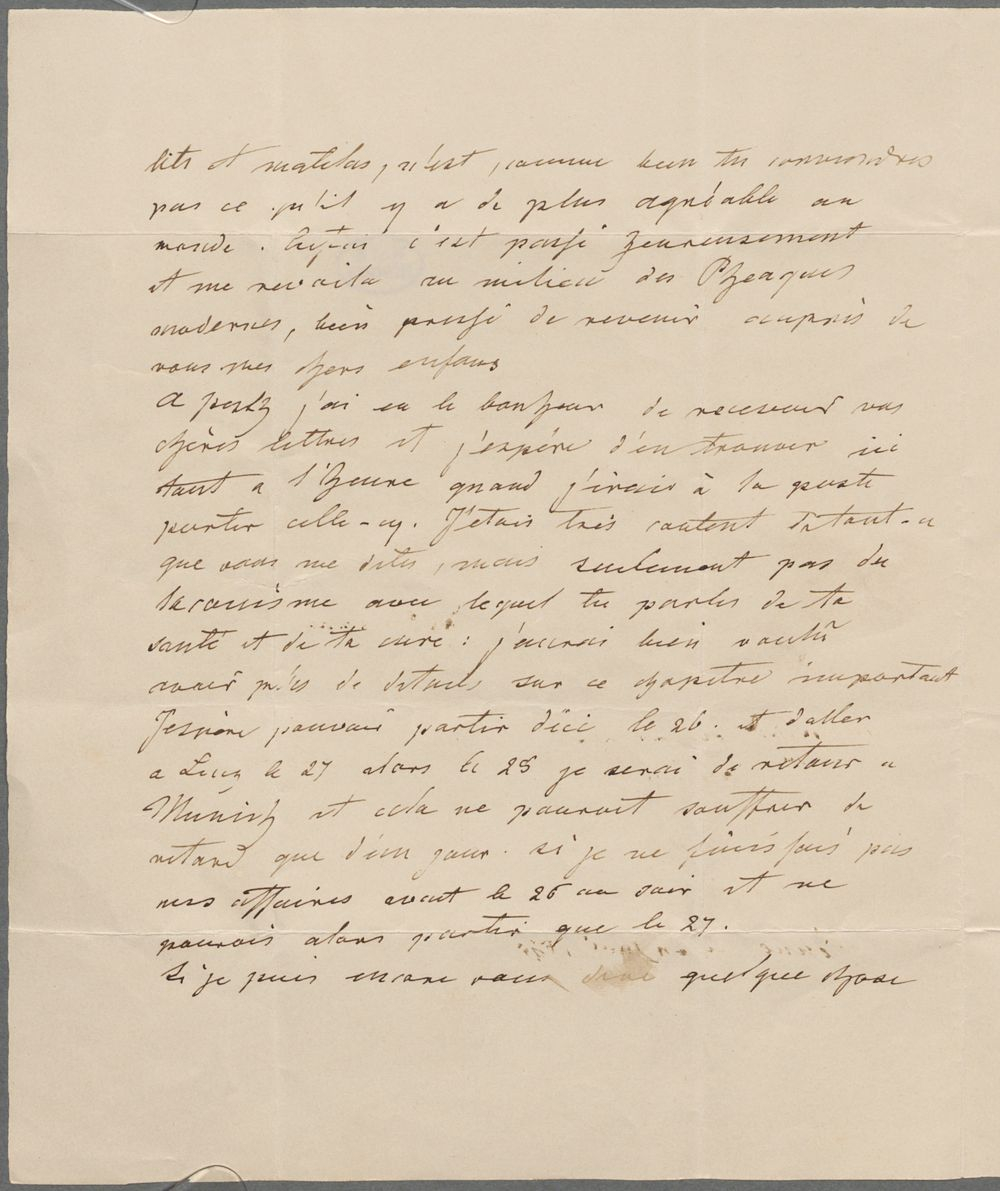 lits et matelas, n'est, comme bien tu conviendras
pas ce qu'il y a de plus agréable au
monde. Enfin c'est passé heureusement
et me revoila au milieu des Pheaques
modernes, bien pressé de revenir auprès de
vous mes chers enfans
A Pesth j'ai eu le bonheur de recevoir vos
chères lettres et j'espére d'en trouver ici
tout a l'heure quand j'irais à la poste
porter celle-cy. J'étais très content de tout-a
que vous me dites, mais seulement pas du
laconisme avec lequel tu parles de ta
santé et de ta cure: j'aurai bien voulû
avoir plus de details sur ce chapitre important
J'espère pouvoir partir d'ici le 26. et d'aller
a Linz le 27 alors le 28 je serai de retour a
Munich et cela ne pouroit souffrir de
retard que d'un jour. si je ne finissais pas
mes affaires avant le 26 au soir et ne
pourois alors partir que le 27.
Si je puis encore vous dire quelque chose